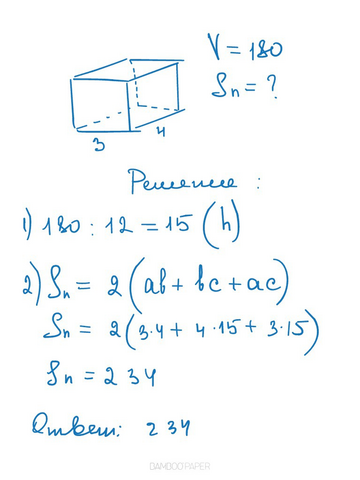 V = 180
Sп = ?
3
4
Решение :
1) 180 : 12 = 15 (h)
2) Sп = 2 (ab + bc + ac)
Sп = 2 (3·4 + 4·15 + 3·15)
Sп = 234
Ответ: 234
BAMBOO PAPER